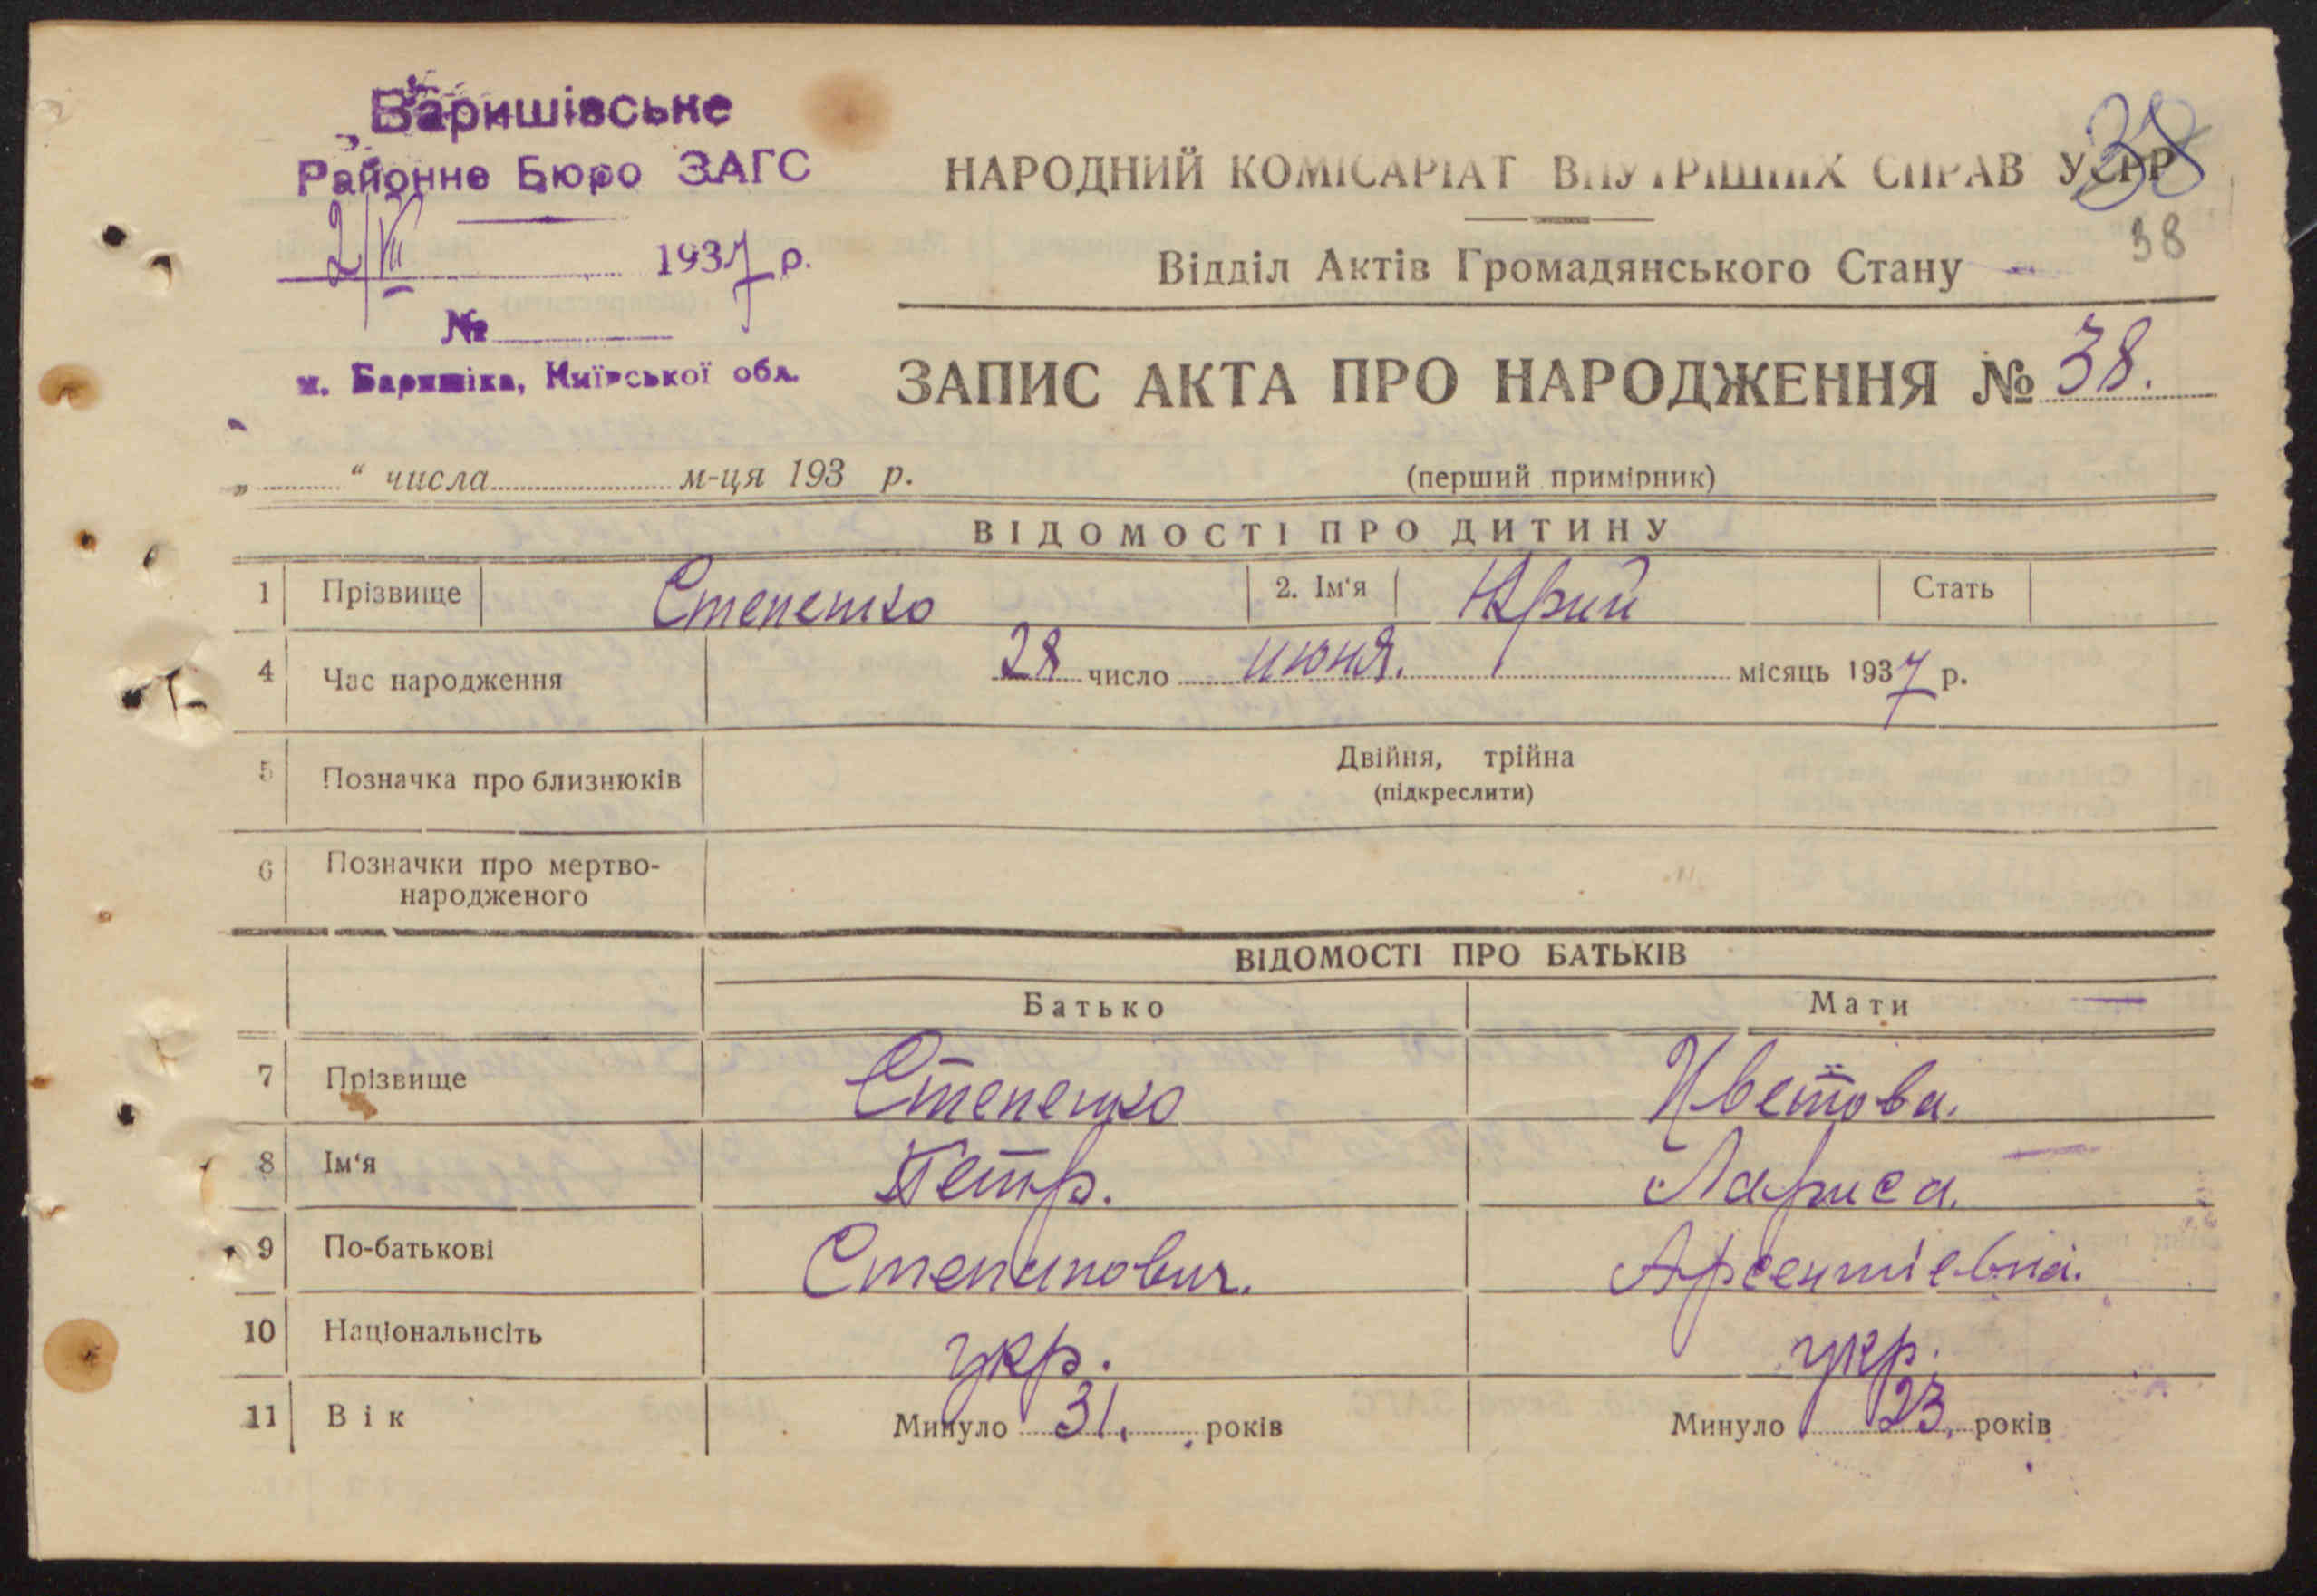 Баришівське
Районне Бюро ЗАГС
2/VII 1937 р.
№
м. Баришівка, Київської обл.
38
НАРОДНИЙ КОМІСАРІАТ ВНУТРІШНІХ СПРАВ УСРР
38
Відділ Актів Громадянського Стану
ЗАПИС АКТА ПРО НАРОДЖЕННЯ № 38.
„ “ числа м-ця 193 р.
(перший примірник)
ВІДОМОСТІ ПРО ДИТИНУ
1 Прізвище Степенко 2. Ім‘я Юрий Стать
4 Час народження 28 число июня. місяць 1937 р.
5 Позначка про близнюків Двійня, трійна
(підкреслити)
6 Позначки про мертво-
народженого
ВІДОМОСТІ ПРО БАТЬКІВ
Батько Мати
7 Прізвище Степенко Цветова.
8 Ім‘я Петр. Лариса.
9 По-батькові Степанович. Арсентіевна.
10 Національнсіть укр. укр.
11 Вік Минуло 31. років Минуло 23. років